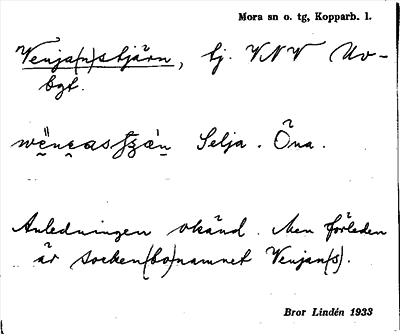 Mora sn o. tg, Kopparb. l.
Venja(n)stjärn, tj. VNV Uv-
bgt.
Selja. Öna.
Anledningen okänd. Men förleden
är socken(bo)namnet Venjan(s).
Bror Lindén 1933